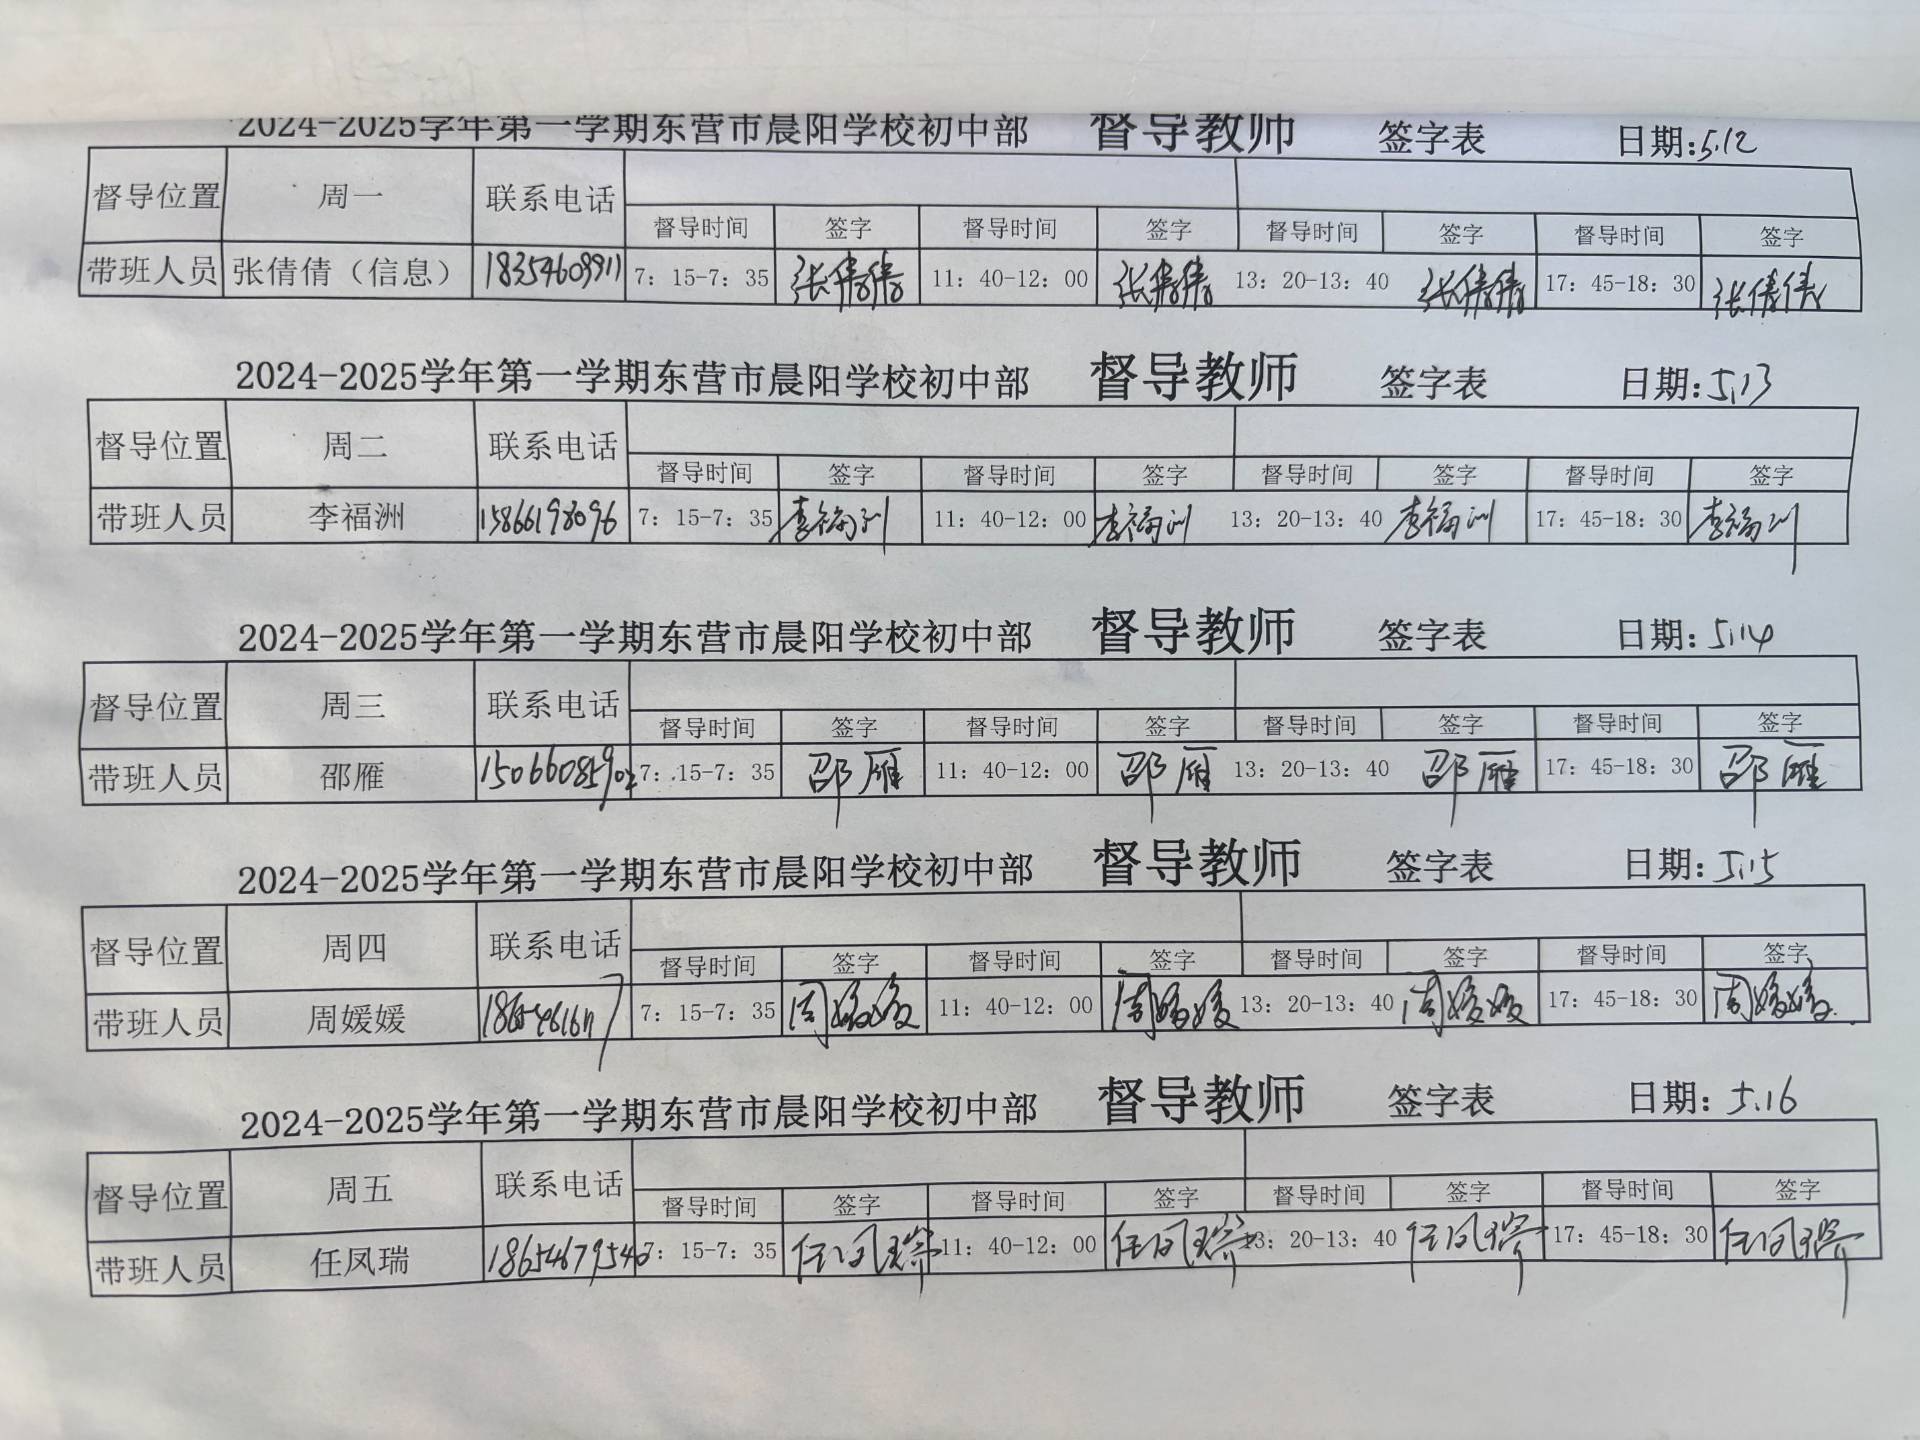 2024-2025学年第一学期东营市晨阳学校初中部 督导教师 签字表 日期:5.12
督导位置 周一 联系电话
督导时间 签字 督导时间 签字 督导时间 签字 督导时间 签字
带班人员 张倩倩（信息） 18354609911 7：15-7：35 张倩倩 11：40-12：00 张倩倩 13：20-13：40 张倩倩 17：45-18：30 张倩倩
2024-2025学年第一学期东营市晨阳学校初中部 督导教师 签字表 日期:5.13
督导位置 周二 联系电话
督导时间 签字 督导时间 签字 督导时间 签字 督导时间 签字
带班人员 李福洲 15866198096 7：15-7：35 李福洲 11：40-12：00 李福洲 13：20-13：40 李福洲 17：45-18：30 李福洲
2024-2025学年第一学期东营市晨阳学校初中部 督导教师 签字表 日期:5.14
督导位置 周三 联系电话
督导时间 签字 督导时间 签字 督导时间 签字 督导时间 签字
带班人员 邵雁 7：15-7：35 邵雁 11：40-12：00 邵雁 13：20-13：40 邵雁 17：45-18：30 邵雁
2024-2025学年第一学期东营市晨阳学校初中部 督导教师 签字表 日期:5.15
督导位置 周四 联系电话
督导时间 签字 督导时间 签字 督导时间 签字 督导时间 签字
带班人员 周媛媛 7：15-7：35 周媛媛 11：40-12：00 周媛媛 13：20-13：40 周媛媛 17：45-18：30 周媛媛
2024-2025学年第一学期东营市晨阳学校初中部 督导教师 签字表 日期:5.16
督导位置 周五 联系电话
督导时间 签字 督导时间 签字 督导时间 签字 督导时间 签字
带班人员 任凤瑞 18654679546 7：15-7：35 任凤瑞 11：40-12：00 任凤瑞 13：20-13：40 任凤瑞 17：45-18：30 任凤瑞